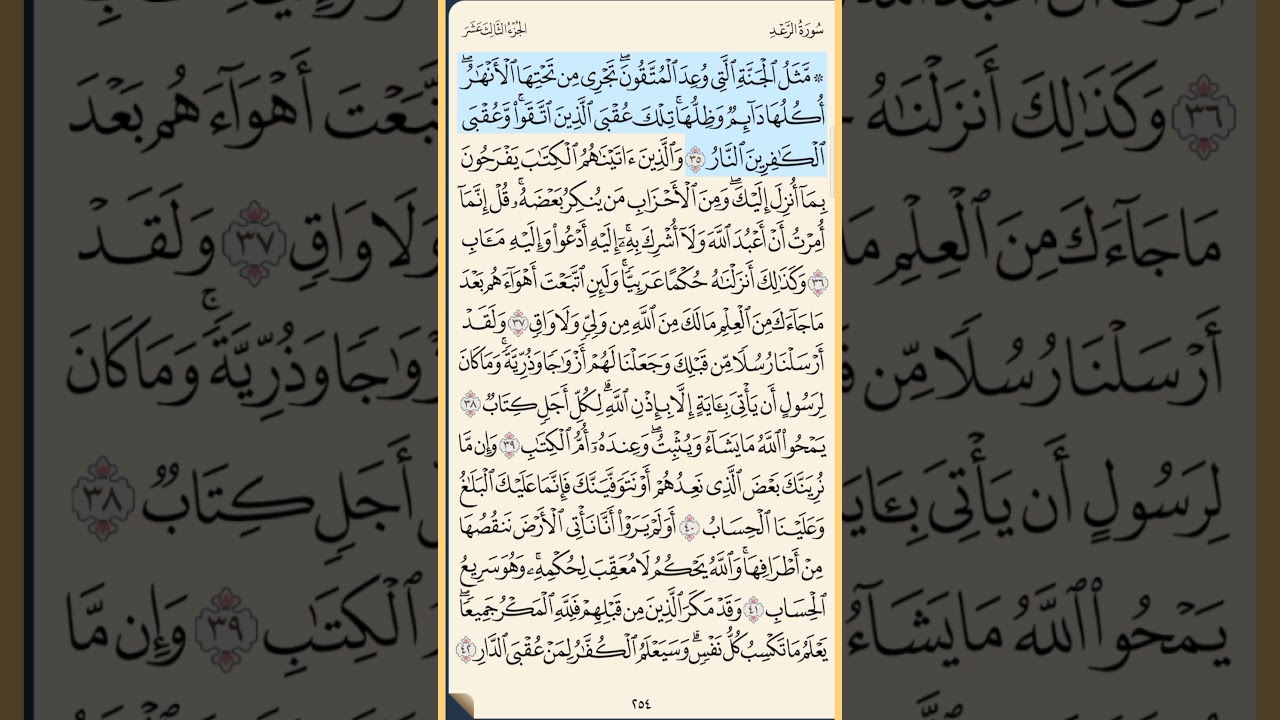 سُورَةُ الرَّعْدِ
الجُزْءُ الثَّالِثَ عَشَرَ
۞ مَّثَلُ ٱلْجَنَّةِ ٱلَّتِى وُعِدَ ٱلْمُتَّقُونَ ۖ تَجْرِى مِن تَحْتِهَا ٱلْأَنْهَـٰرُ ۖ
أُكُلُهَا دَآئِمٌ وَظِلُّهَا ۚ تِلْكَ عُقْبَى ٱلَّذِينَ ٱتَّقَوا۟ ۖ وَّعُقْبَى
ٱلْكَـٰفِرِينَ ٱلنَّارُ ٣٥ وَٱلَّذِينَ ءَاتَيْنَـٰهُمُ ٱلْكِتَـٰبَ يَفْرَحُونَ
بِمَآ أُنزِلَ إِلَيْكَ ۖ وَمِنَ ٱلْأَحْزَابِ مَن يُنكِرُ بَعْضَهُۥ ۚ قُلْ إِنَّمَآ
أُمِرْتُ أَنْ أَعْبُدَ ٱللَّهَ وَلَآ أُشْرِكَ بِهِۦٓ ۚ إِلَيْهِ أَدْعُوا۟ وَإِلَيْهِ مَـَٔابِ
٣٦ وَكَذَٰلِكَ أَنزَلْنَـٰهُ حُكْمًا عَرَبِيًّا ۚ وَلَئِنِ ٱتَّبَعْتَ أَهْوَآءَهُم بَعْدَ
مَا جَآءَكَ مِنَ ٱلْعِلْمِ مَا لَكَ مِنَ ٱللَّهِ مِن وَلِىٍّ وَلَا وَاقٍ ٣٧ وَلَقَدْ
أَرْسَلْنَا رُسُلًا مِّن قَبْلِكَ وَجَعَلْنَا لَهُمْ أَزْوَٰجًا وَذُرِّيَّةً ۚ وَمَا كَانَ
لِرَسُولٍ أَن يَأْتِىَ بِـَٔايَةٍ إِلَّا بِإِذْنِ ٱللَّهِ ۗ لِكُلِّ أَجَلٍ كِتَابٌ ٣٨
يَمْحُوا۟ ٱللَّهُ مَا يَشَآءُ وَيُثْبِتُ ۖ وَعِندَهُۥٓ أُمُّ ٱلْكِتَـٰبِ ٣٩ وَإِن مَّا
نُرِيَنَّكَ بَعْضَ ٱلَّذِى نَعِدُهُمْ أَوْ نَتَوَفَّيَنَّكَ فَإِنَّمَا عَلَيْكَ ٱلْبَلَـٰغُ
وَعَلَيْنَا ٱلْحِسَابُ ٤٠ أَوَلَمْ يَرَوْا۟ أَنَّا نَأْتِى ٱلْأَرْضَ نَنقُصُهَا
مِنْ أَطْرَافِهَا ۚ وَٱللَّهُ يَحْكُمُ لَا مُعَقِّبَ لِحُكْمِهِۦ ۚ وَهُوَ سَرِيعُ
ٱلْحِسَابِ ٤١ وَقَدْ مَكَرَ ٱلَّذِينَ مِن قَبْلِهِمْ فَلِلَّهِ ٱلْمَكْرُ جَمِيعًا ۖ
يَعْلَمُ مَا تَكْسِبُ كُلُّ نَفْسٍ ۗ وَسَيَعْلَمُ ٱلْكُفَّـٰرُ لِمَنْ عُقْبَى ٱلدَّارِ ٤٢
٢٥٤